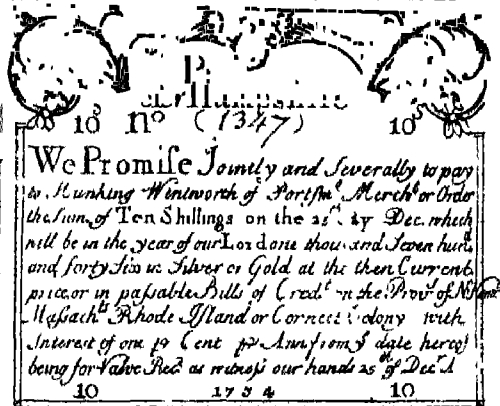 10 No (1347) 10
We Promise Jointly and Severally to pay
to Hunking Wentworth of Portsmo Mercht or Order
the Sum of Ten Shillings on the 25th Day Decr. which
will be in the year of our Lord one thousand Seven hund
and forty Six in Silver or Gold at the then Current
price, or in passable Bills of Credt on the Provs of N Hamp
Massachts Rhode Island or Connect Colony with
Interest of one pr Cent pr Ann from ye date hereof
being for Value Recd. as witness our hands 25th of Decr
10 1734 10